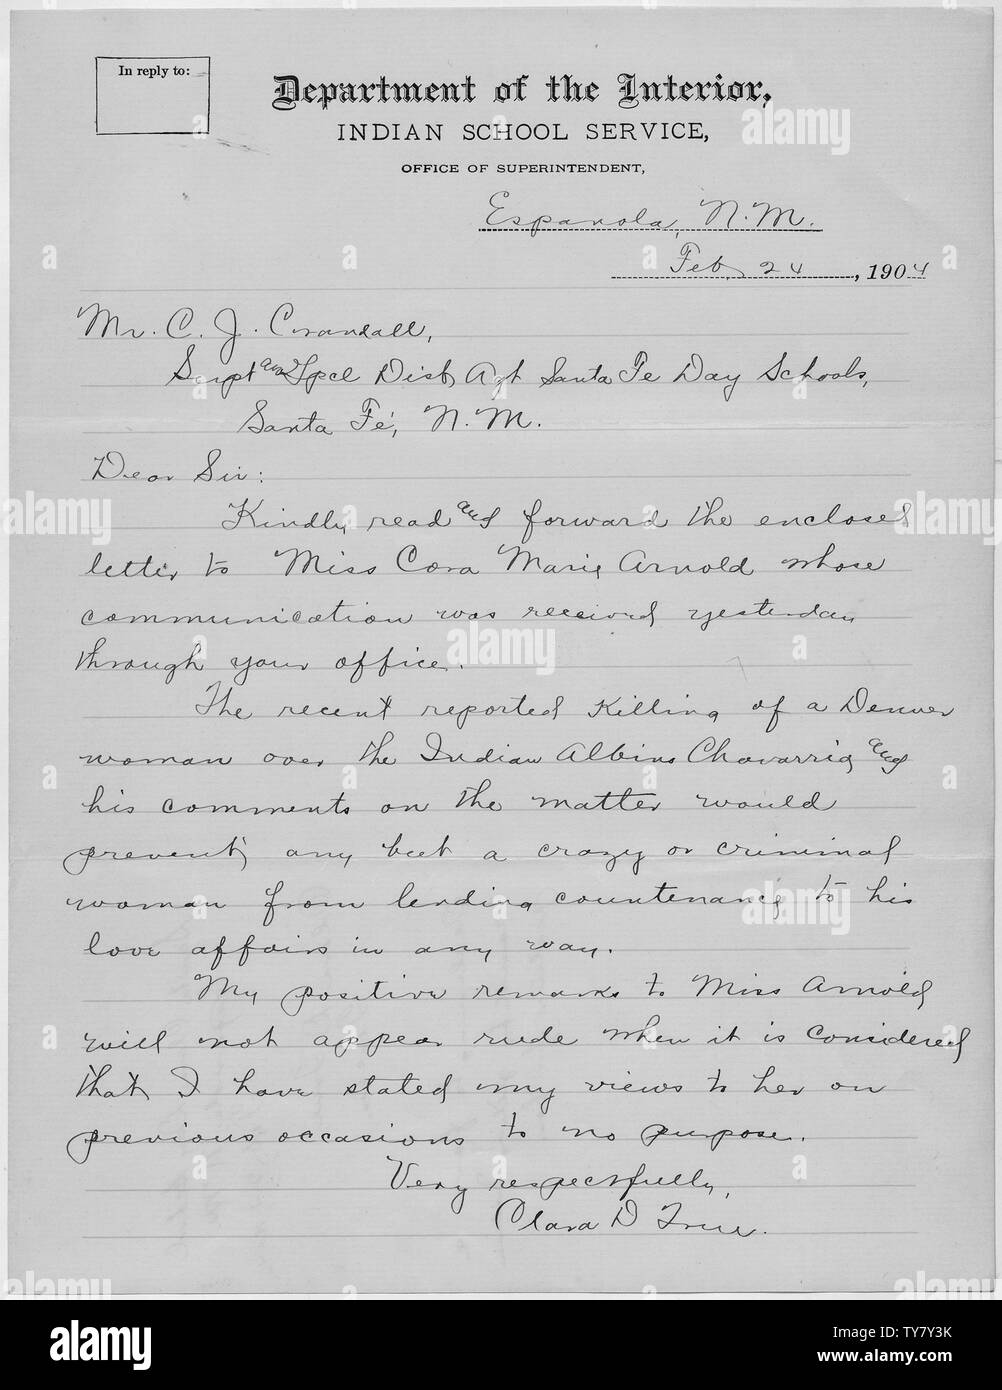 In reply to:
Department of the Interior,
INDIAN SCHOOL SERVICE,
OFFICE OF SUPERINTENDENT,
Espanola, N.M.
Feb. 24, 1904
Mr. C. J. Crandall,
Supt and Spcl Disb Agt Santa Fe Day Schools,
Santa Fé, N. M.
Dear Sir:
Kindly read and forward the enclosed
letter to Miss Cora Marie Arnold whose
communication was received yesterday
through your office.
The recent reported killing of a Denver
woman over the Indian Albino Chavarria and
his comments on the matter would
prevent any but a crazy or criminal
woman from lending countenance to his
love affairs in any way.
My positive remarks to Miss Arnold
will not appear rude when it is considered
that I have stated my views to her on
previous occasions to no purpose.
Very respectfully,
Clara D True.
alamy
Image ID: TY7Y3K
www.alamy.com